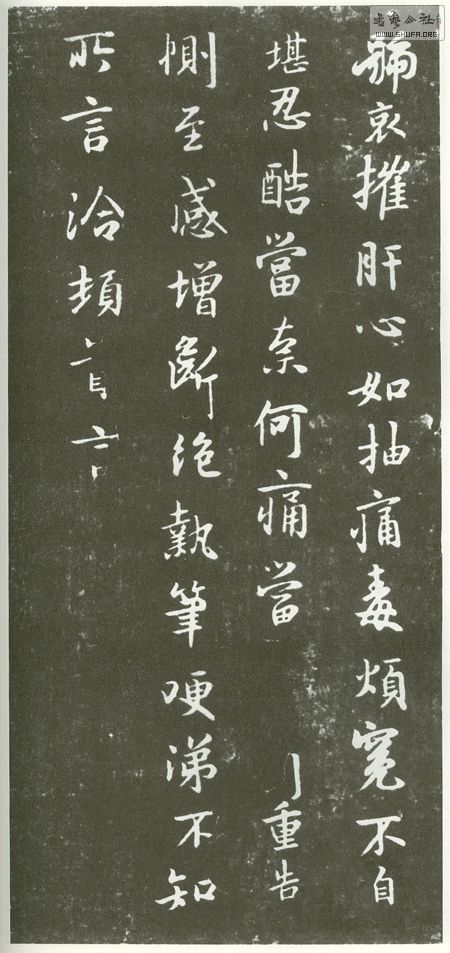 號哀摧肝心如抽痛毒煩冤不自
堪忍酷當奈何痛當重告
惻至感增斷絕執筆哽涕不知
所言洽頓首言
書藝公社
WWW.SHUFA.ORG